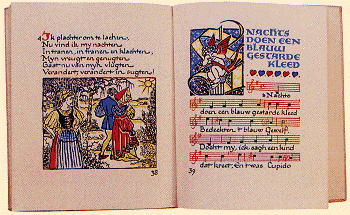 4 Ik plachter om te lachen
Nu vind ik my nachten
In tranen, in tranen en klachten,
Myn vreugt en genugten
Gaat nu van myn vlugten
Verandert, verandert in zugten!
38
NACHTS
DOEN EEN
BLAUW
GESTARDE
KLEED
'sNachts
doen een blauw gestarde kleed
Bedeckten 't blauw Gewelf.
Docht my, ick sag een kind
dat kreet, En 't was Cupido
39